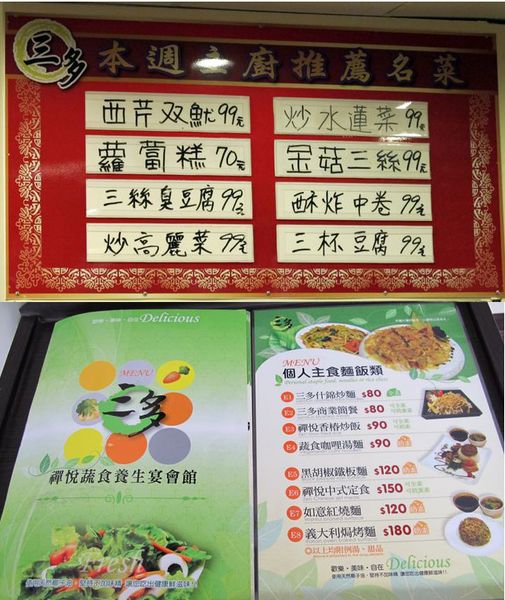 三多 本週主廚推薦名菜
西芹双魷 99元
炒水蓮菜 99元
蘿蔔糕 70元
金菇三絲 99元
三絲臭豆腐 99元
酥炸中卷 99元
炒高麗菜 99元
三杯豆腐 99元
歡樂・美味・自在 Delicious
MENU
三多
禪悅蔬食養生宴會館
Fresh
使用天然椰子油，堅持不加味精 讓您吃出健康鮮滋味!!
三多
MENU
個人主食麵飯類
Personal staple food, noodles or rice class
E1 三多什錦炒麵 $80
E2 三多商業簡餐 $80
E3 禪悅香椿炒飯 $90
E4 蔬食咖哩湯麵 $90
E5 黑胡椒鐵板麵 $120
E6 禪悅中式定食 $150
E7 如意紅燒麵 $120
E8 義大利焗烤麵 $180
◎以上均附例湯、甜品
歡樂・美味・自在 Delicious
使用天然椰子油，堅持不加味精 讓您吃出健康鮮滋味!!